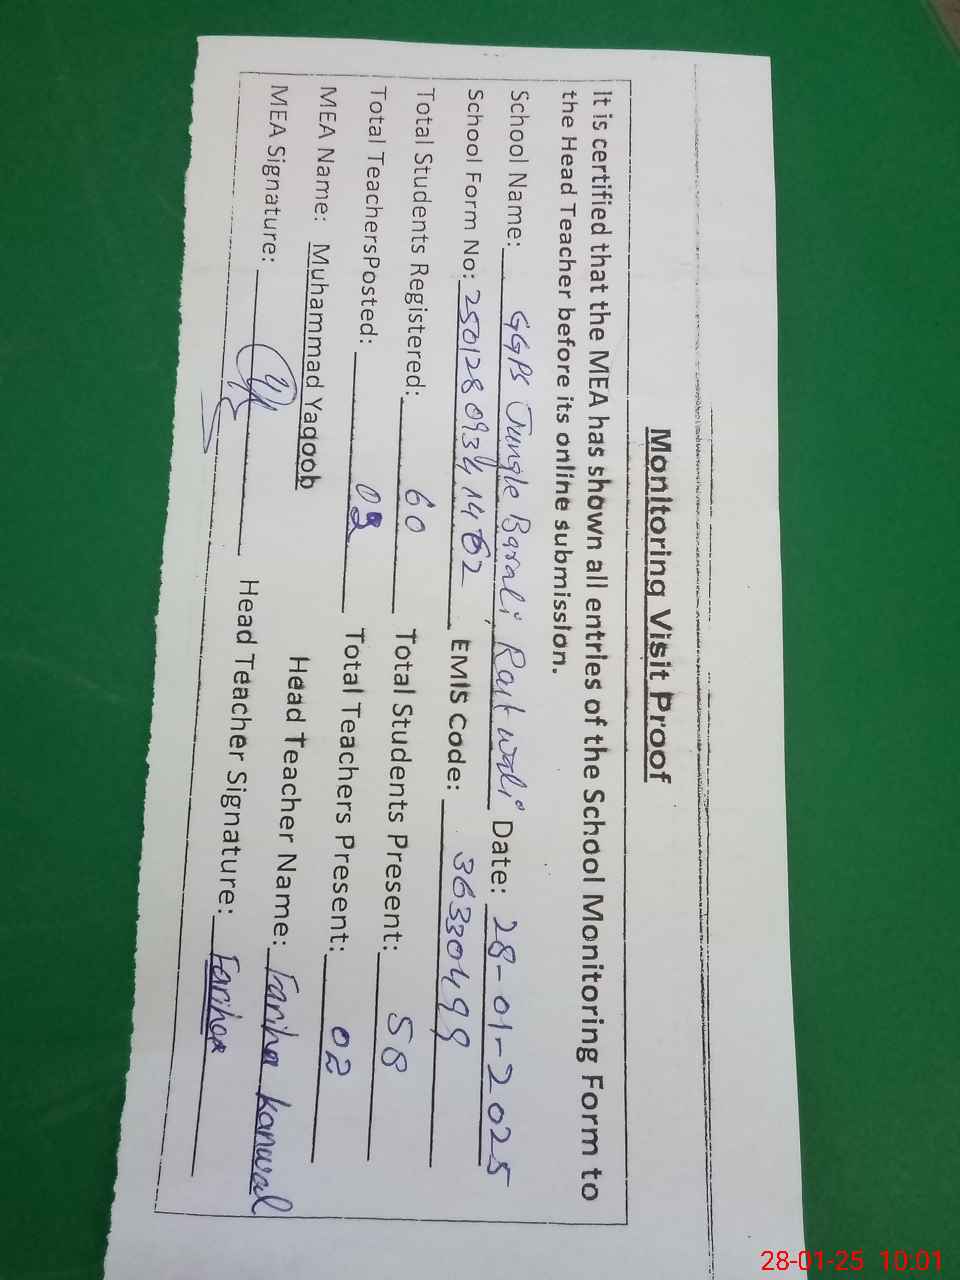 Monitoring Visit Proof
It is certified that the MEA has shown all entries of the School Monitoring Form to
the Head Teacher before its online submission.
School Name: GGPS Jungle Barali, Rait wali Date: 28-01-2025
School Form No: 250128093414 62 EMIS code: 36330499
Total Students Registered: 60 Total Students Present: 58
Total TeachersPosted: 02 Total Teachers Present: 02
MEA Name: Muhammad Yaqoob Head Teacher Name: Fariha kanwal
MEA Signature: Head Teacher Signature: Fariha
28-01-25 10:01